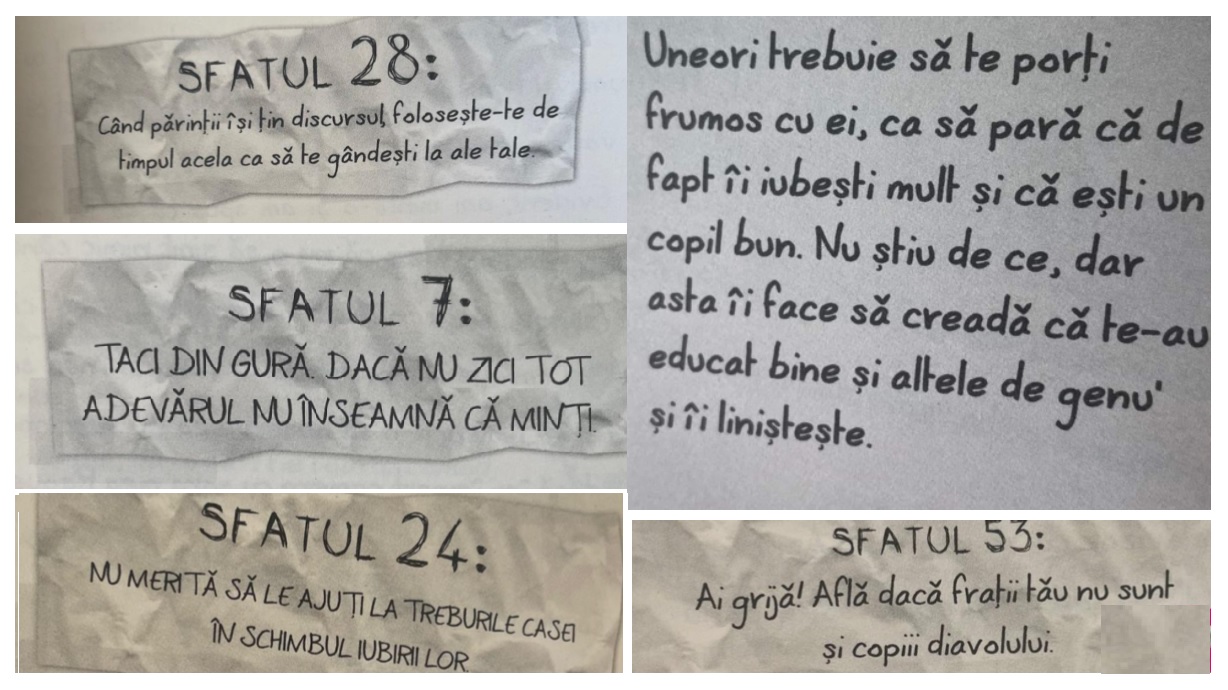 SFATUL 28:
Când părinții își țin discursul, folosește-te de
timpul acela ca să te gândești la ale tale.
SFATUL 7:
TACI DIN GURĂ. DACĂ NU ZICI TOT
ADEVĂRUL NU ÎNSEAMNĂ CĂ MINȚI.
SFATUL 24:
NU MERITĂ SĂ LE AJUȚI LA TREBURILE CASEI
ÎN SCHIMBUL IUBIRII LOR.
Uneori trebuie să te porți
frumos cu ei, ca să pară că de
fapt îi iubești mult și că ești un
copil bun. Nu știu de ce, dar
asta îi face să creadă că te-au
educat bine și altele de genu'
și îi liniștește.
SFATUL 53:
Ai grijă! Află dacă frații tău nu sunt
și copiii diavolului.